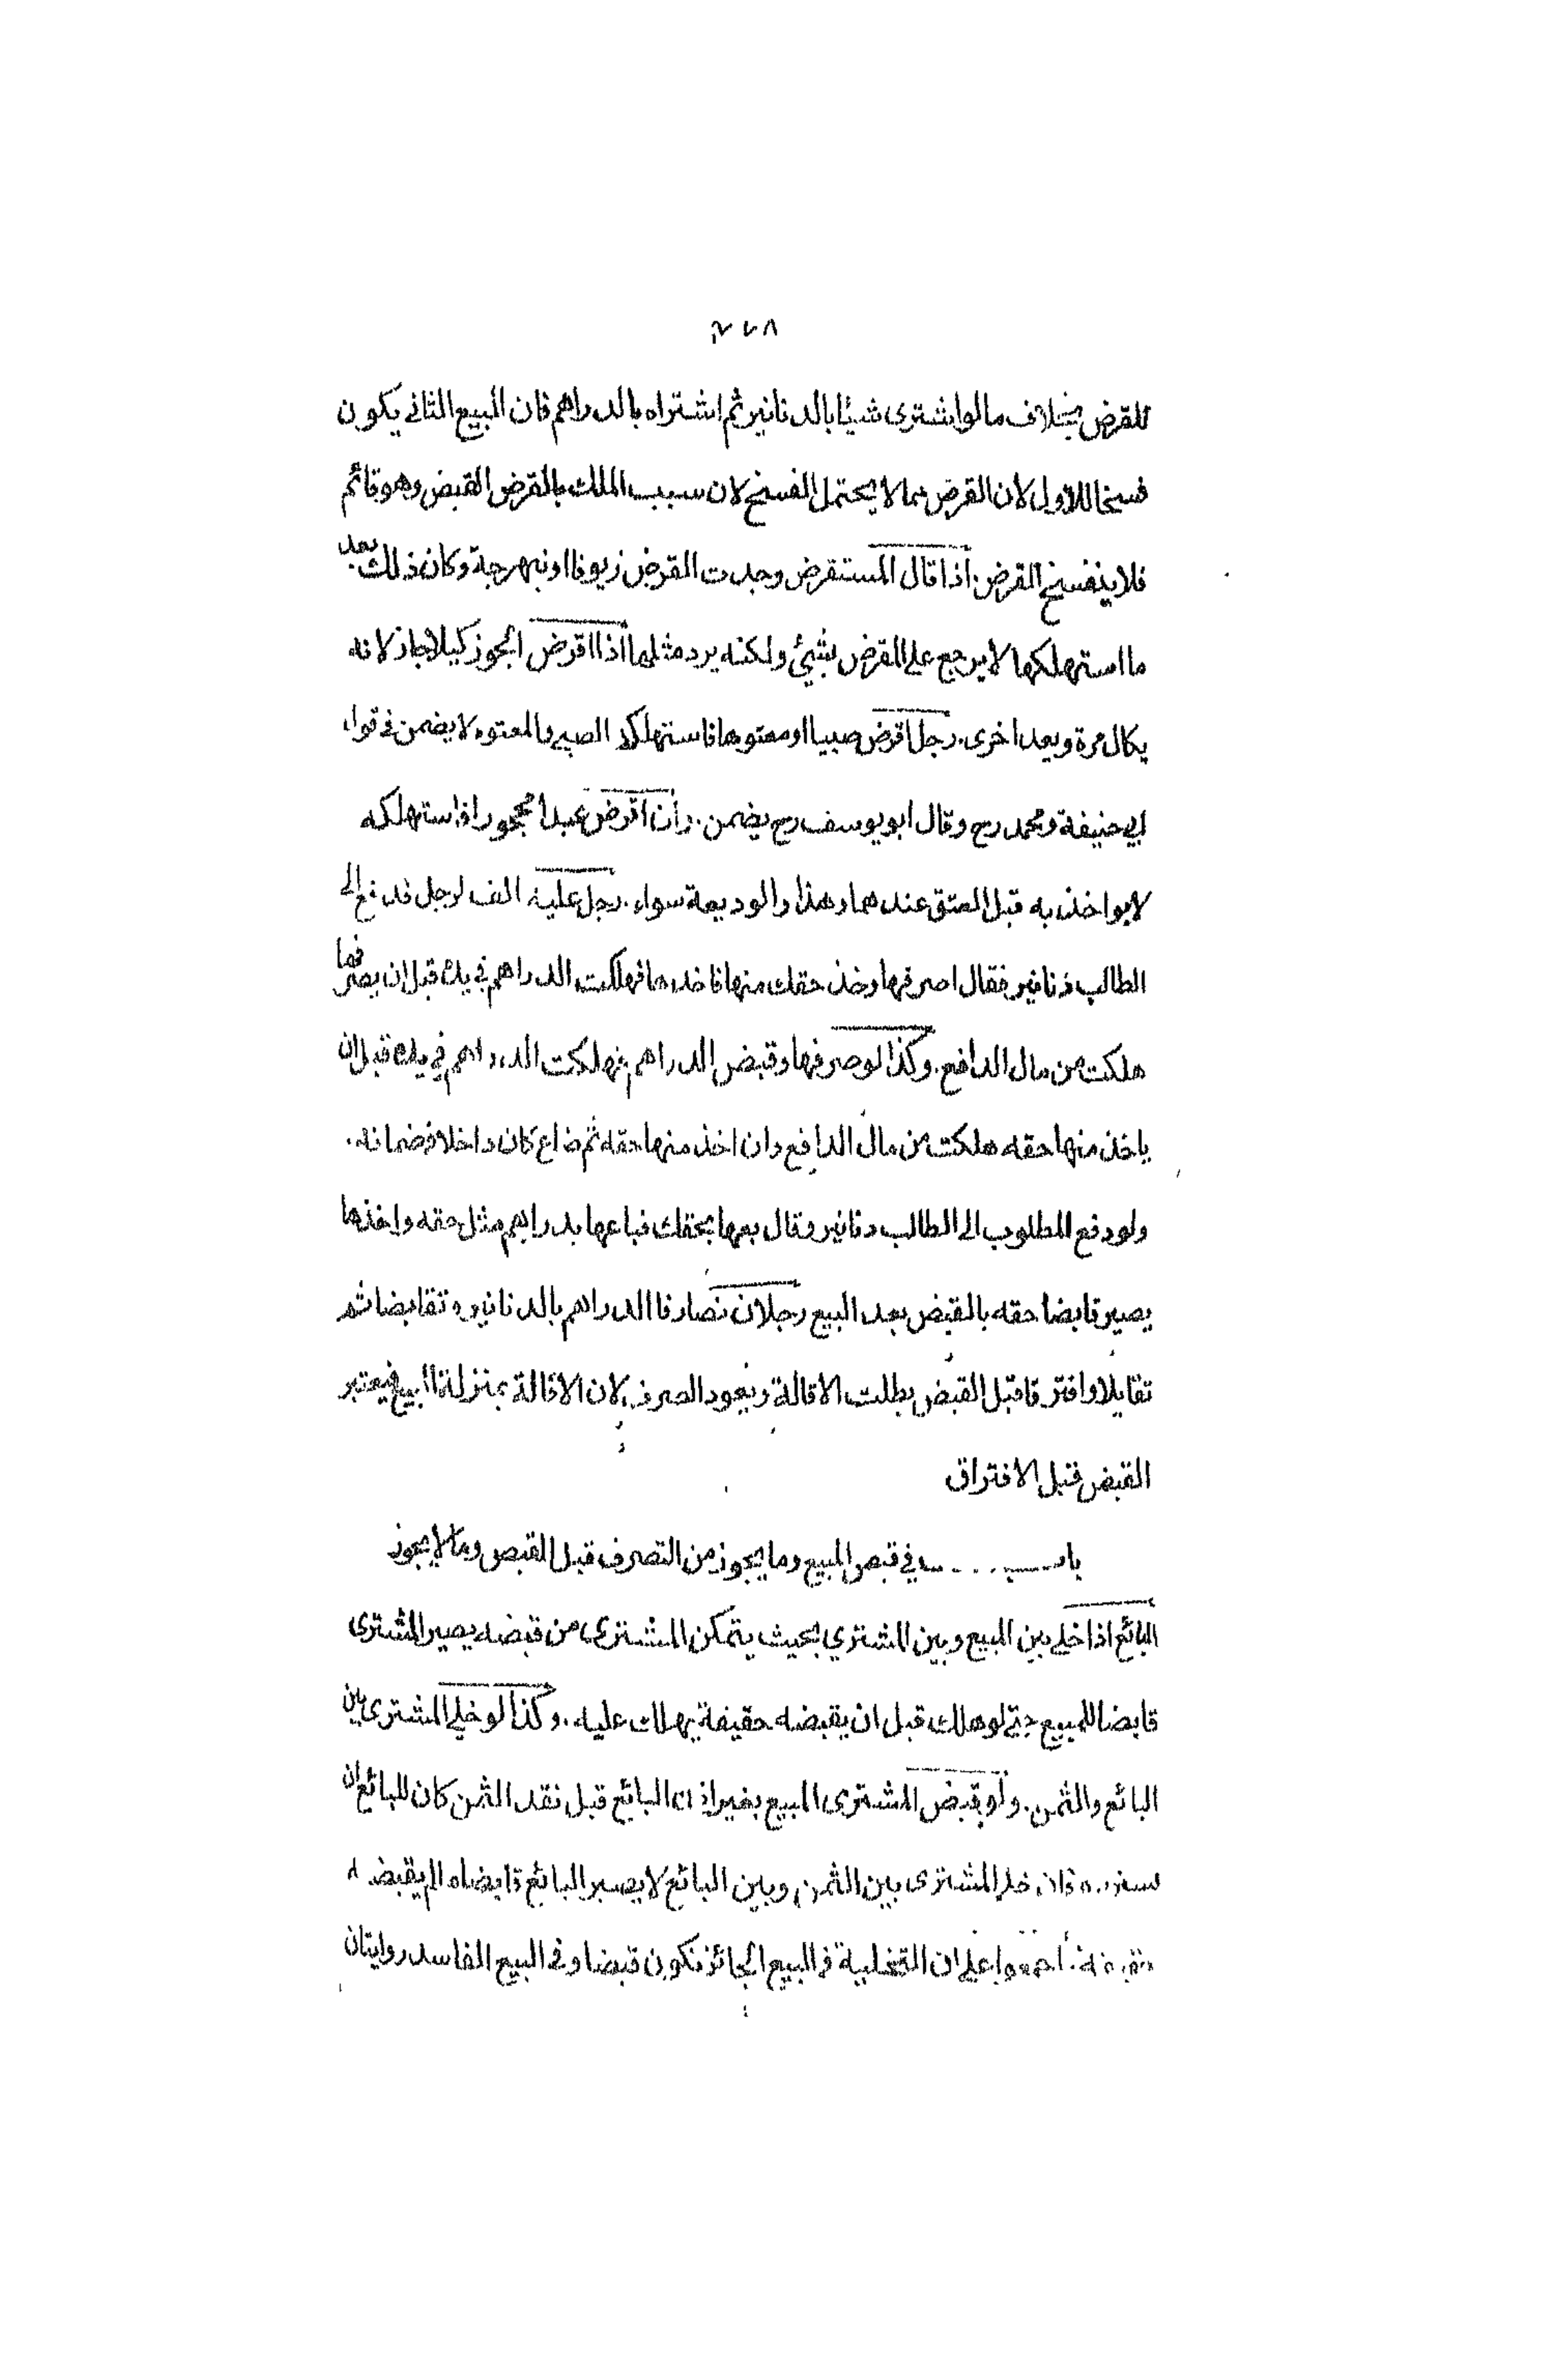 للقرض بخلاف ما لو اشترى شيئا بالدنانير ثم اشتراه بالدراهم فان البيع الثاني يكون
فسخا للاول لان القرض مما لا يحتمل الفسخ لان سبب الملك بالقرض القبض وهو قائم
فلا ينفسخ القرض. اذا قال المستقرض وجدت القرض زيوفا او نبهرجة وكان ذلك بعد
ما استهلكها لا يرجع على المقرض بشئ ولكنه يرد مثلها اذا اقرض الجوز كيلا جاز لانه
يكال مرة ويعد اخرى. رجل اقرض صبيا او معتوها فاستهلكه الصبي والمعتوه لا يضمن في قول
ابي حنيفة ومحمد رح وقال ابو يوسف رح يضمن. وان اقرض عبدا محجورا فاستهلكه
لا يواخذ به قبل العتق عندهما وهذا والوديعة سواء. رجل عليه الف لرجل فدفع الى
الطالب دنانير فقال اصرفها وخذ حقك منها فاخذها فهلكت الدراهم في يده قبل ان يصرفها
هلكت من مال الدافع. وكذا لو صرفها وقبض الدراهم فهلكت الدراهم في يده قبل ان
ياخذ منها حقه هلكت من مال الدافع وان اخذ منها حقه ثم ضاع كان داخلا في ضمانه.
ولو دفع المطلوب الى الطالب دنانير وقال بعها بحقك فباعها بدراهم مثل حقه واخذها
يصير قابضا حقه بالقبض بعد البيع رجلان تصارفا الدراهم بالدنانير وتقابضا ثم
تقايلا وافترقا قبل القبض بطلت الاقالة ويعود الصرف لان الاقالة بمنزلة البيع فيعتبر
القبض قبل الافتراق
باب في قبض المبيع وما يجوز من التصرف قبل القبض وما لا يجوز
البائع اذا خلى بين المبيع وبين المشتري بحيث يتمكن المشترى من قبضه يصير المشترى
قابضا للمبيع حتى لو هلك قبل ان يقبضه حقيقة يهلك عليه. وكذا لو خلى المشترى بين
البائع والثمن. ولو قبض المشترى المبيع بغير اذن البائع قبل نقد الثمن كان للبائع ان
فان خلى المشترى بين الثمن وبين البائع لا يصير البائع قابضا ما لم يقبضه
اجمعوا على ان التخلية في البيع الجائز تكون قبضا وفي البيع الفاسد روايتان